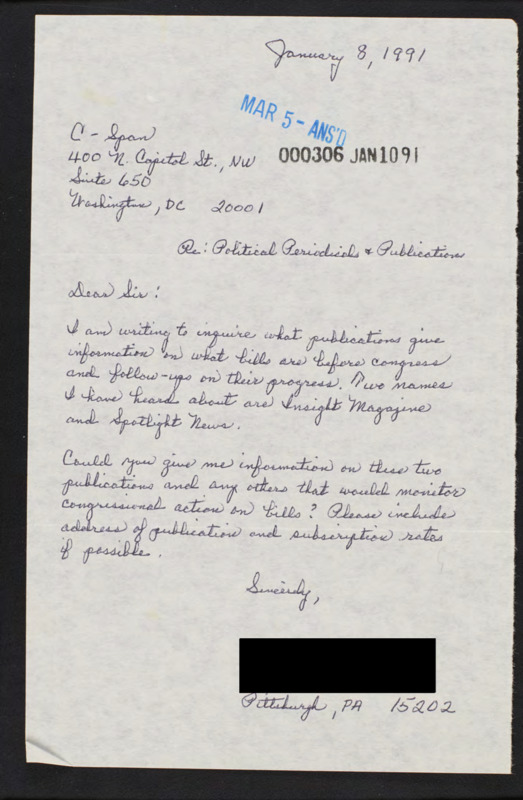 January 8, 1991
MAR 5 - ANS'D
000306 JAN1091
C-Span
400 N. Capitol St., NW
Suite 650
Washington, DC 20001
Re: Political Periodicals & Publications
Dear Sir:
I am writing to inquire what publications give
information on what bills are before congress
and follow-ups on their progress. Two names
I have heard about are Insight Magazine
and Spotlight News.
Could you give me information on these two
publications and any others that would monitor
congressional action on bills? Please include
address of publication and subscription rates
if possible.
Sincerely,
Pittsburgh, PA 15202